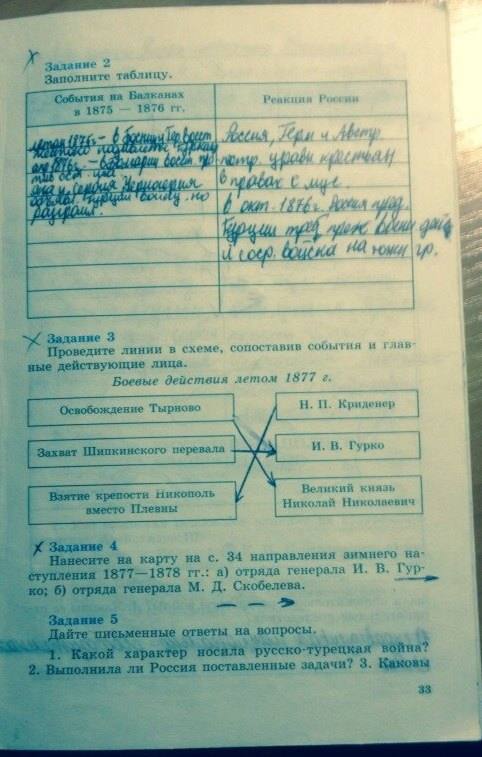 Задание 2
Заполните таблицу.
События на Балканах
в 1875 — 1876 гг.
Реакция России
летом 1875г. - в Боснии и Герц восст
1876г. - в Болгарии восст про
тив
Сербия Черногория
Турции войну, но
Россия, Герм и Австр
потр. уравн крестьян
в правах с мус.
В окт. 1876г. Россия пред.
Турции треб прек воен дейс
и соср. войска на южн гр.
Задание 3
Проведите линии в схеме, сопоставив события и глав-
ные действующие лица.
Боевые действия летом 1877 г.
Освобождение Тырново
Н. П. Криденер
Захват Шипкинского перевала
И. В. Гурко
Взятие крепости Никополь
вместо Плевны
Великий князь
Николай Николаевич
Задание 4
Нанесите на карту на с. 34 направления зимнего на-
ступления 1877—1878 гг.: а) отряда генерала И. В. Гур-
ко; б) отряда генерала М. Д. Скобелева.
Задание 5
Дайте письменные ответы на вопросы.
1. Какой характер носила русско-турецкая война?
2. Выполнила ли Россия поставленные задачи? 3. Каковы
33